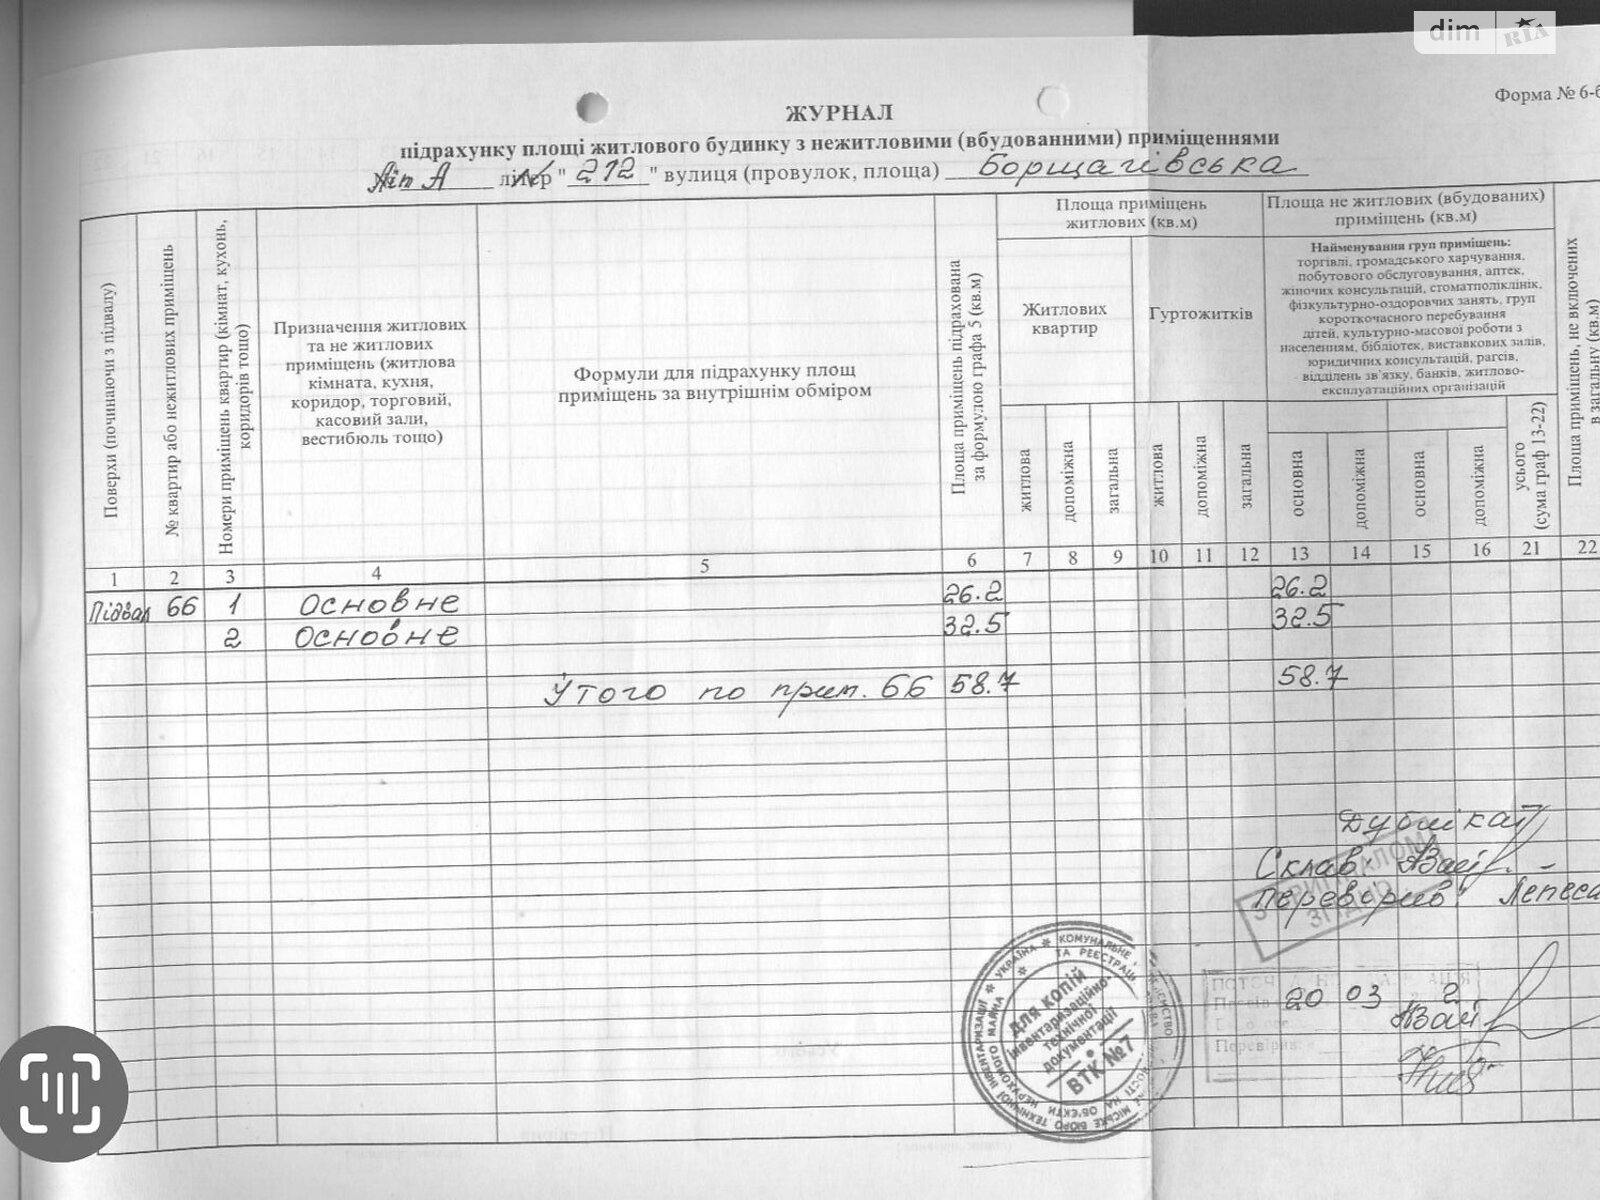 dim RIA
Форма № 6-б
ЖУРНАЛ
підрахунку площі житлового будинку з нежитловими (вбудованними) приміщеннями
Літ А літер " 212 " вулиця (провулок, площа) Борщагівська
Поверхи (починаючи з підвалу)
№ квартир або нежитлових приміщень
Номери приміщень квартир (кімнат, кухонь,
коридорів тощо)
Призначення житлових
та не житлових
приміщень (житлова
кімната, кухня,
коридор, торговий,
касовий зали,
вестибюль тощо)
Формули для підрахунку площ
приміщень за внутрішнім обміром
Площа приміщень підрахована
за формулою графа 5 (кв.м)
Площа приміщень
житлових (кв.м)
Житлових
квартир
Гуртожитків
житлова
допоміжна
загальна
житлова
допоміжна
загальна
Площа не житлових (вбудованих)
приміщень (кв.м)
Найменування груп приміщень:
торгівлі, громадського харчування,
побутового обслуговування, аптек,
жіночих консультацій, стоматполіклінік,
фізкультурно-оздоровчих занять, груп
короткочасного перебування
дітей, культурно-масової роботи з
населенням, бібліотек, виставкових залів,
юридичних консультацій, рагсів,
відділень зв'язку, банків, житлово-
експлуатаційних організацій
основна
допоміжна
основна
допоміжна
усього
(сума граф 13-22)
Площа приміщень, не включених
в загальну (кв.м)
1 2 3 4 5 6 7 8 9 10 11 12 13 14 15 16 21 22
Підвал 66 1 Основне 26.2 26.2
2 Основне 32.5 32.5
Утого по прим. 66 58.7 58.7
Дублікат
Склав
Переворив
З ОРИГІНАЛОМ
ЗГІДНО
20 03
УКРАЇНА * КОМУНАЛЬНЕ
Для копій
інвентаризаційно-
технічної
документації
ВТК №7